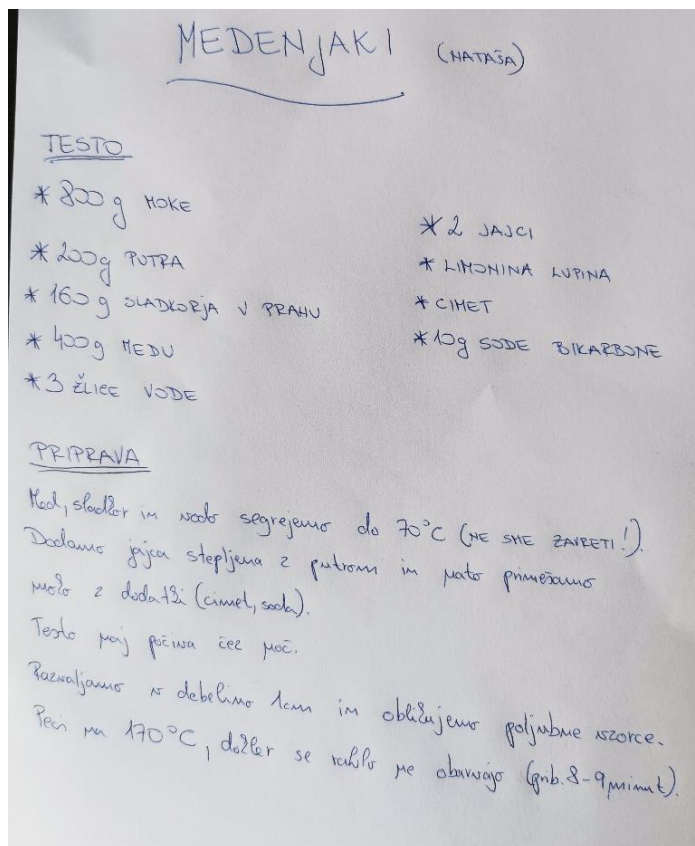 MEDENJAKI (NATAŠA)
TESTO
* 800 g MOKE
* 200g PUTRA
* 160 g SLADKORJA V PRAHU
* 400g MEDU
* 3 ŽLICE VODE
* 2 JAJCI
* LIMONINA LUPINA
* CIMET
* 10g SODE BIKARBONE
PRIPRAVA
Med, sladkor in vodo segrejemo do 70°C (NE SME ZAVRETI!).
Dodamo jajca stepljena z putrom in nato primešamo
moko z dodatki (cimet, soda).
Testo naj počiva čez noč.
Razvaljamo v debelino 1cm in oblikujemo poljubne vzorce.
Peči na 170°C, dokler se rahlo ne obarvajo (prib. 8-9 minut).